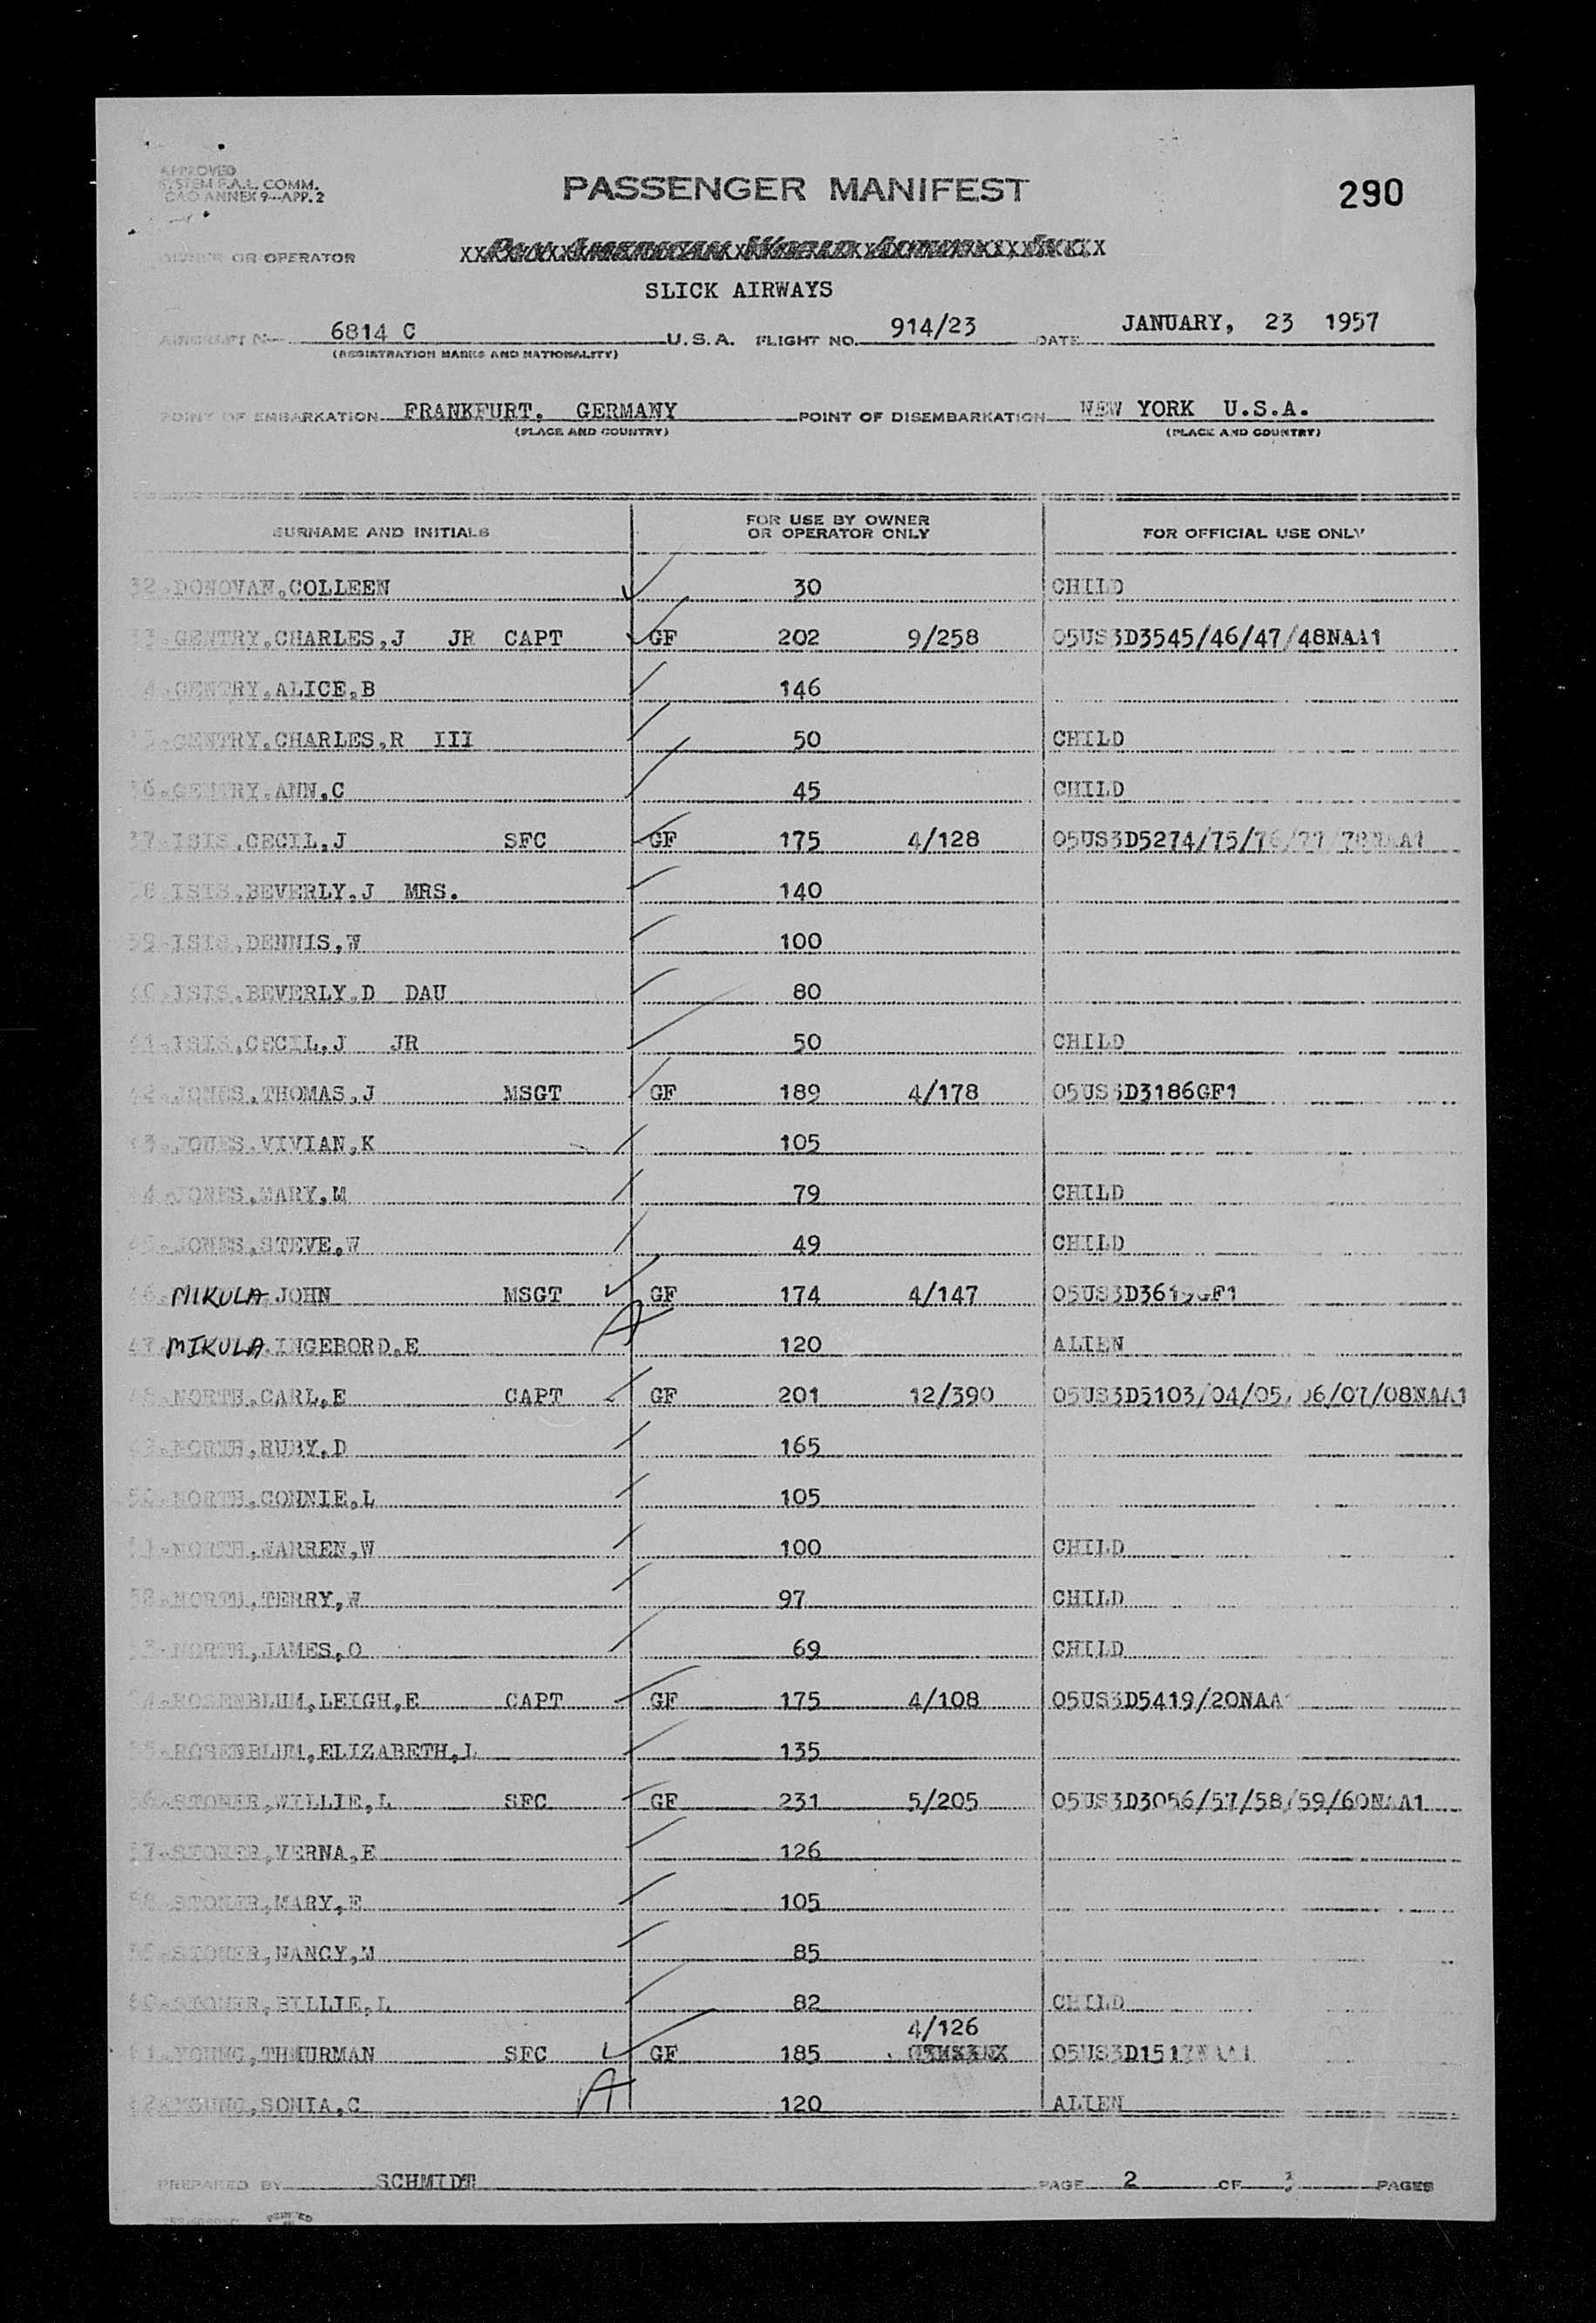 APPROVED
SYSTEM F.A.L. COMM.
ICAO ANNEX 9—APP. 2
PASSENGER MANIFEST
290
OWNER OR OPERATOR
SLICK AIRWAYS
AIRCRAFT No 6814 C U.S.A. FLIGHT NO. 914/23 DATE JANUARY, 23 1957
(REGISTRATION MARKS AND NATIONALITY)
POINT OF EMBARKATION FRANKFURT, GERMANY POINT OF DISEMBARKATION NEW YORK U.S.A.
(PLACE AND COUNTRY) (PLACE AND COUNTRY)
SURNAME AND INITIALS FOR USE BY OWNER OR OPERATOR ONLY FOR OFFICIAL USE ONLY
32. DONOVAN,COLLEEN 30 CHILD
33. GENTRY,CHARLES,J JR CAPT GF 202 9/258 05US3D3545/46/47/48NAA1
34. GENTRY,ALICE,B 146
35. GENTRY,CHARLES,R III 50 CHILD
36. GENTRY,ANN,C 45 CHILD
37. ISIS,CECIL,J SFC GF 175 4/128 05US3D5274/75/76/77/78NAA1
38. ISIS,BEVERLY,J MRS. 140
39. ISIS,DENNIS,W 100
40. ISIS,BEVERLY,D DAU 80
41. ISIS,CECIL,J JR 50 CHILD
42. JONES,THOMAS,J MSGT GF 189 4/178 05US3D3186GF1
43. JONES,VIVIAN,K 105
44. JONES,MARY,M 79 CHILD
45. JONES,STEVE,W 49 CHILD
46. MIKULA JOHN MSGT GF 174 4/147 05US3D3619GF1
47. MIKULA INGEBORD,E 120 ALIEN
48. NORTH,CARL,E CAPT GF 201 12/390 05US3D5103/04/05/06/07/08NAA1
49. NORTH,RUBY,D 165
50. NORTH,CONNIE,L 105
51. NORTH,WARREN,W 100 CHILD
52. NORTH,TERRY,W 97 CHILD
53. NORTH,JAMES,O 69 CHILD
54. ROSENBLUM,LEIGH,E CAPT GF 175 4/108 05US3D5419/20NAA1
55. ROSENBLUM,ELIZABETH,L 135
56. STONER,WILLIE,L SFC GF 231 5/205 05US3D3056/57/58/59/60NAA1
57. STONER,VERNA,E 126
58. STONER,MARY,E 105
59. STONER,NANCY,M 85
60. STONER,BILLIE,L 82 CHILD
4/126
61. YOUNG,THMURMAN SFC GF 185 05US3D1517NAA1
62. YOUNG,SONIA,C 120 ALIEN
PREPARED BY SCHMIDT PAGE 2 OF PAGES